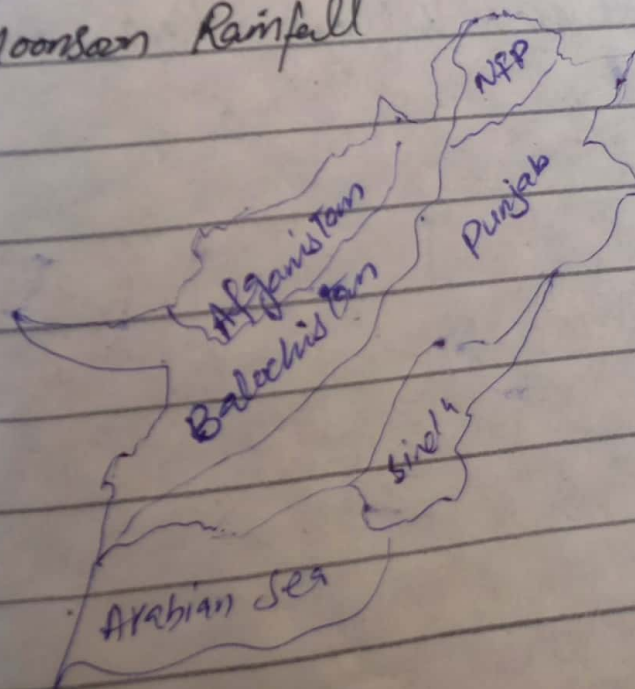 Moonsoon Rainfall
NFP
Punjab
Afganistan
Balochistan
Sindh
Arabian Sea